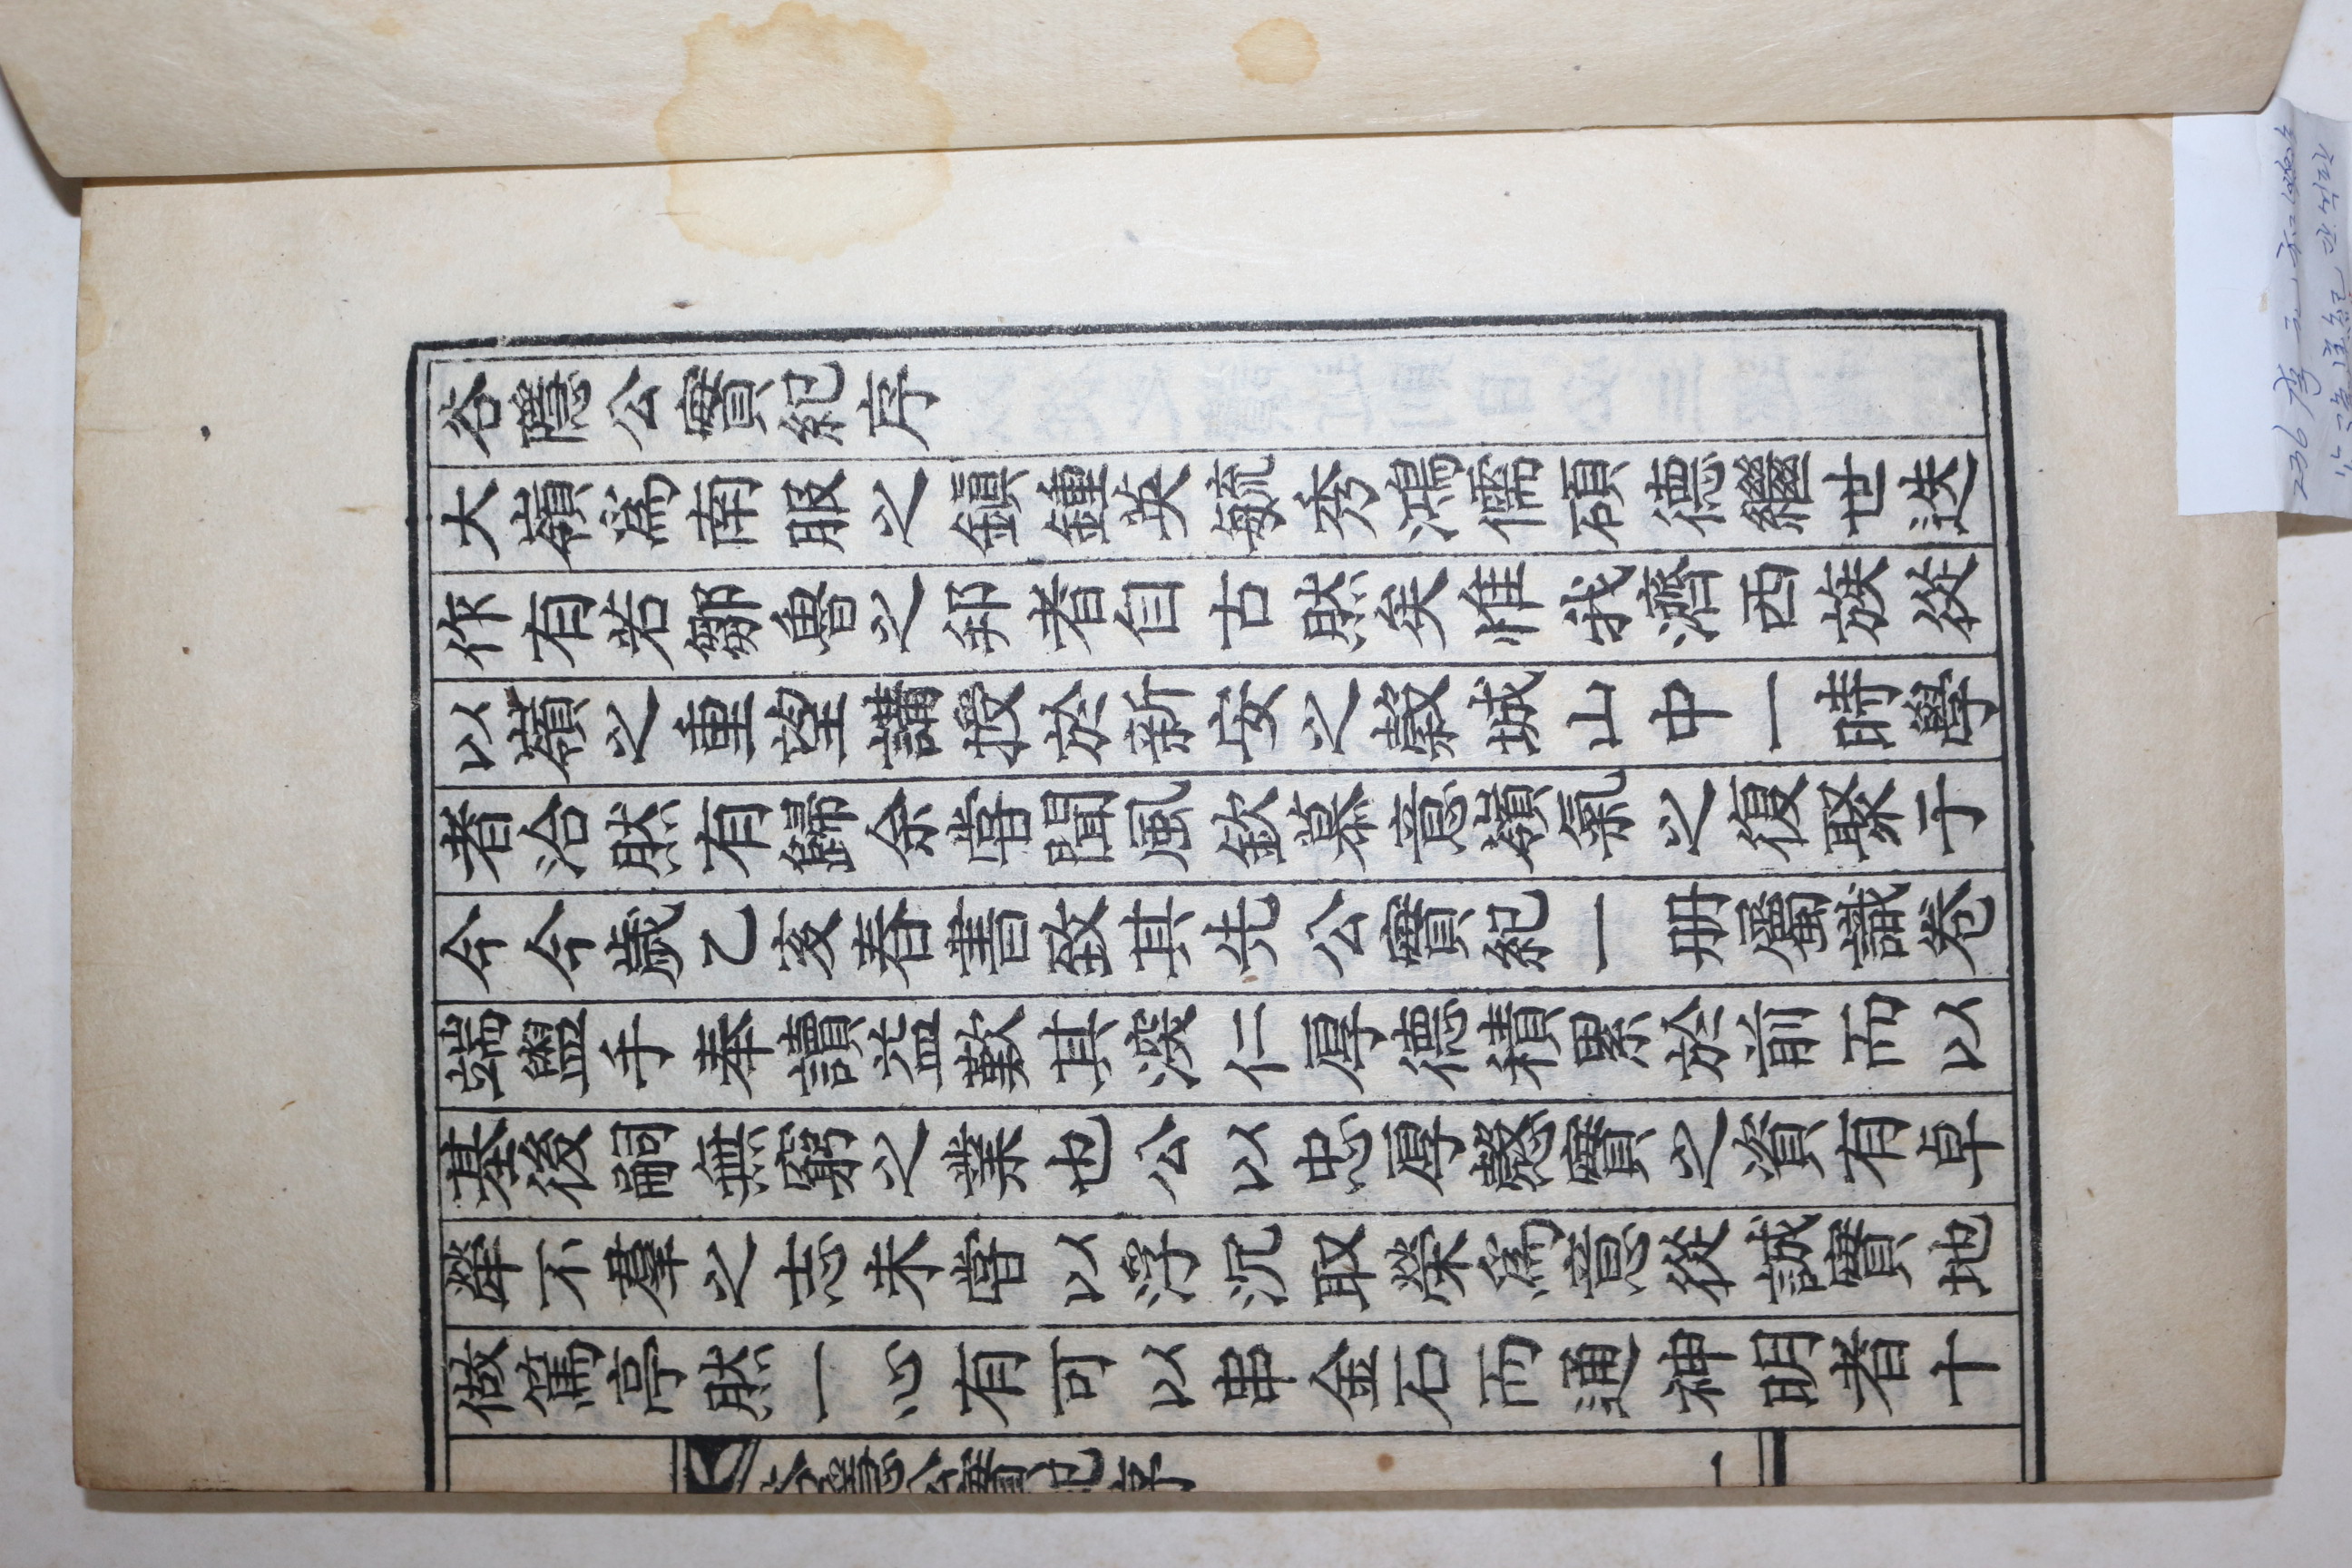 谷隱公實紀序
大嶺爲南服之鎭鍾英毓秀鴻儒碩德繼世迭
作有若鄒魯之邦者自古然矣惟我濟西族從
以嶺之重望講授於新安之穀城山中一時學
者洽然有歸余嘗聞風欽慕意嶺氣之復聚于
今今歲乙亥春書致其先公實紀一册屬識卷
端盥手奉讀益歎其深仁厚德積累於前而以
基後嗣無窮之業也公以忠厚慤實之資有卓
犖不羣之志未嘗以浮沉取榮爲意從誠實地
做篤亭然一心有可以串金石而通神明者十
谷隱公實紀序
一
236 李